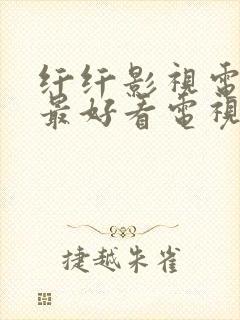 纤纤影視電
最好看電視
捷越朱雀